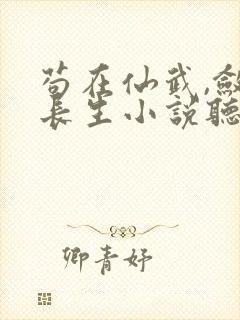 苟在仙武,斂
長生小說聽
卿青妤